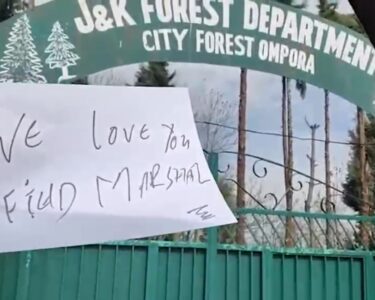 J&K FOREST DEPARTMENT
CITY FOREST OMPORA
WE love you
FIELD MARSHAL